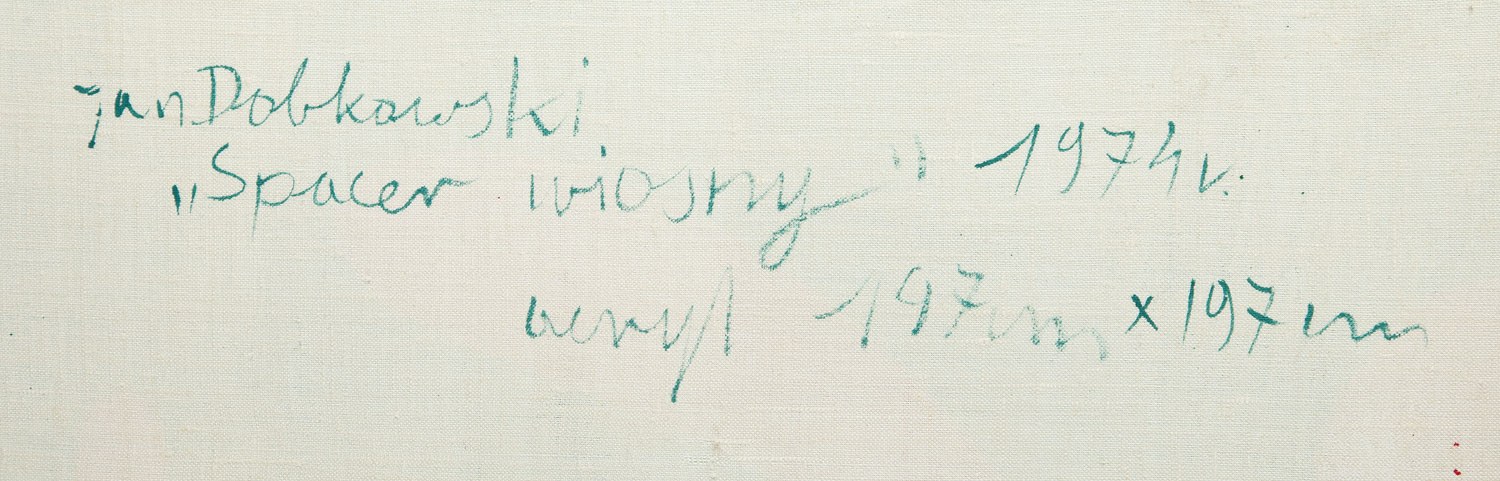 Jan Dobkowski
„Spacer wiosny" 1974 r.
akryl 197 cm x 197 cm